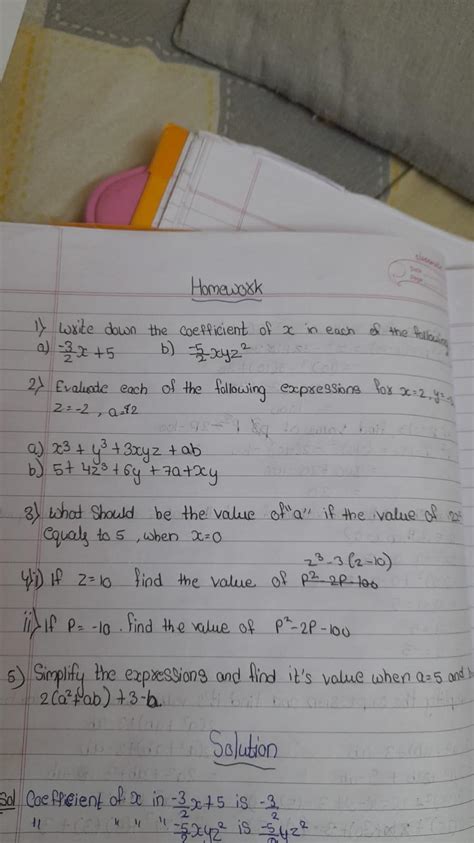 Homework
1) Write down the coefficient of x in each of the following
a) -3/2 x + 5 b) -5/2 xyz²
2) Evaluate each of the following expressions for x=2, y=
z=-2, a=
a) x³ + y³ + 3xyz + ab
b) 5 + 4z³ + 6y + 7a + xy
3) What should be the value of "a" if the value of
equals to 5, when x=0
z³-3(z-10)
4) i) If z=10 find the value of P²-2P-100
ii) If P= -10. find the value of P²-2P-100
5) Simplify the expressions and find it's value when a=5 and
2(a²+ab)+3-b
Solution
Sol Coefficient of x in -3/2 x+5 is -3/2
" " " " -5/2 xyz² is -5/2 yz²